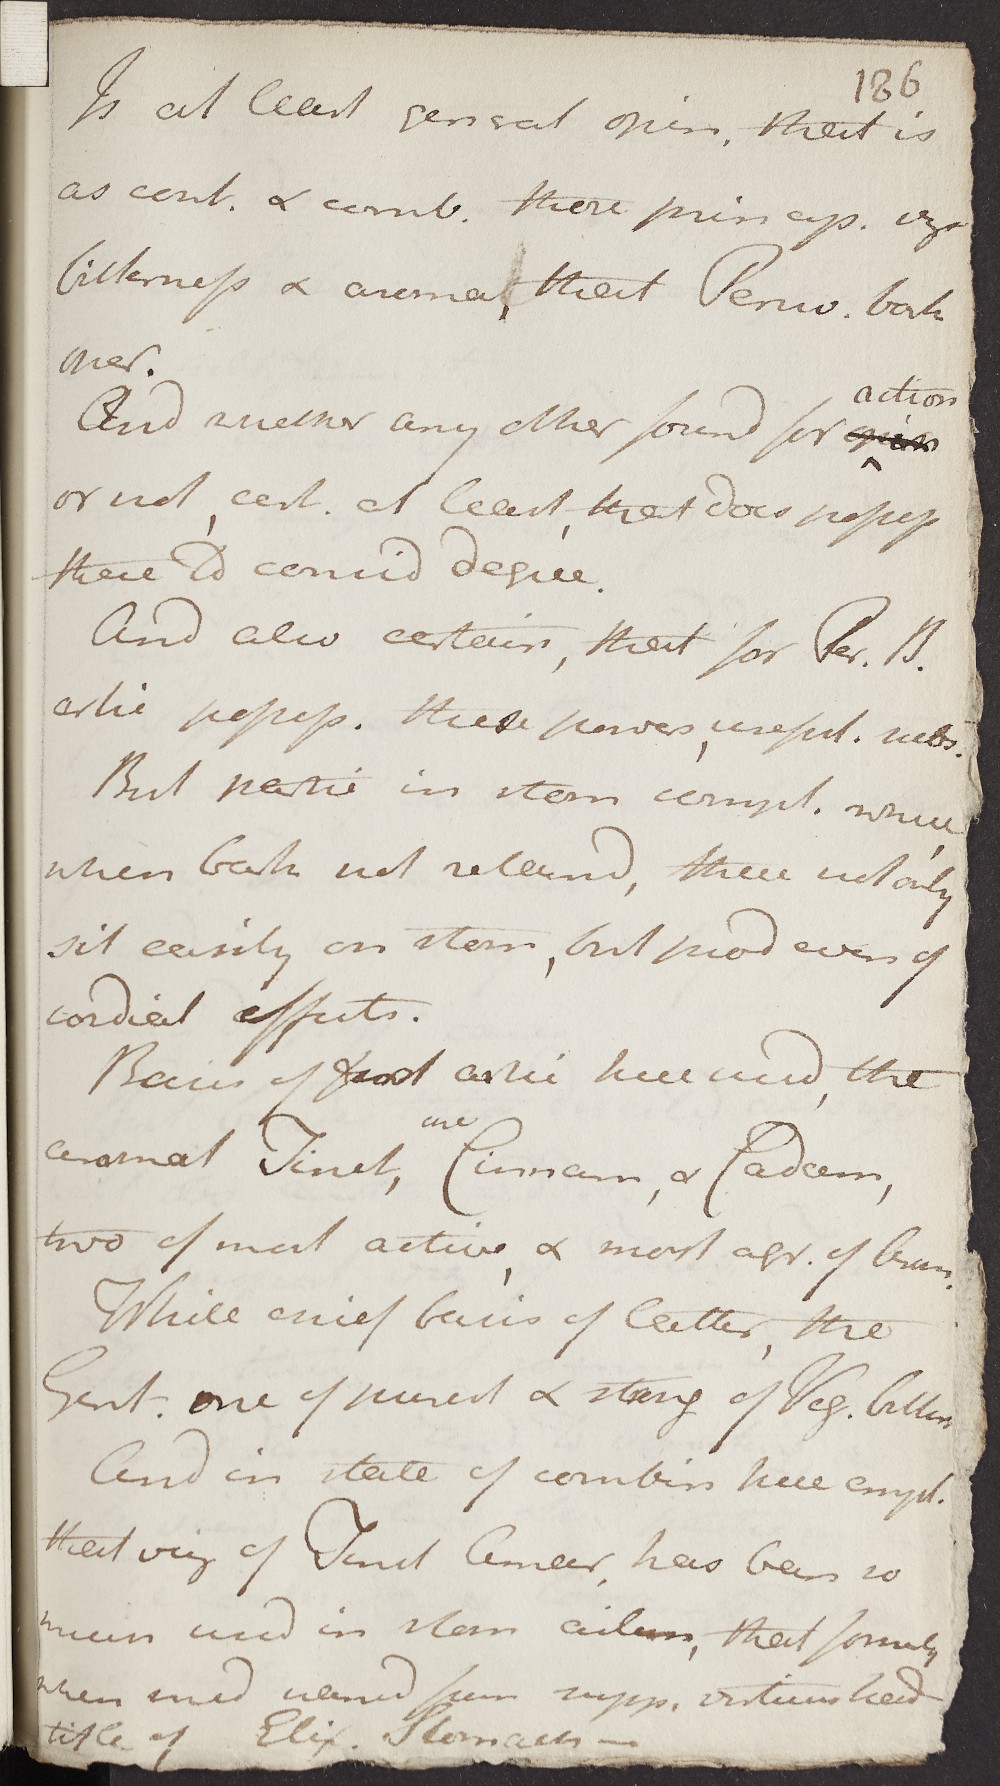 186
Is at least general opin, that is
as cont. & comb. these princip. viz
bitterness & aroma, that Peruv. bark
oper.
And whether any other found for action
or not, cert. at least, that does possess
these to consid degree.
And also certain, that for Per. B.
artic possess. these powers, useful. subs.
But partic in stom compl. where,
when bark not retained, these not only
sit easily on stom, but prod even of
cordial effects.
Basis of first artic here used, the
aromat Tinct, are Cinnam, & Cardam,
two of most active, & most agr. of
While chief basis of latter, the
Gent. one of purest & strong of Veg. bitters
And in state of combin here empl.
that viz of Tinct Amar, has been so
much used in stom ailm, that formerly
when used from supp. virtues had
title of Elix. Stomach